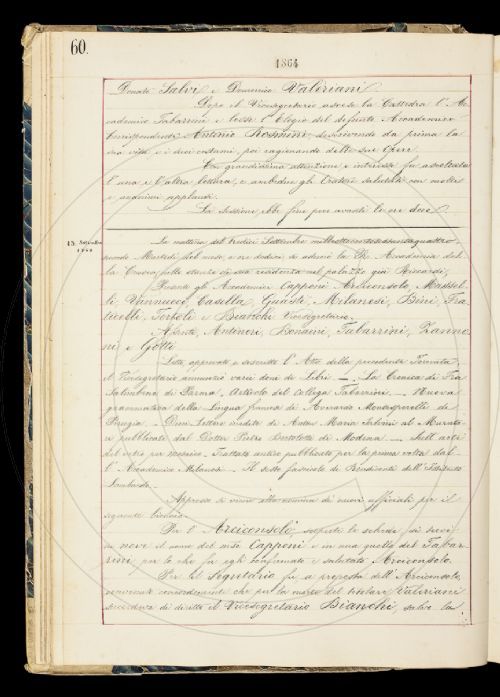 60.
1864
Donato Salvi e Domenico Valeriani.
Dopo il Vicesegretario ascese la Cattedra l'Ac-
cademico Tabarrini e lesse l'Elogio del defunto Accademico
Corrispondente Antonio Rosmini, descrivendo da prima la
sua vita e i suoi costumi, poi ragionando delle sue Opere.
Con grandissima attenzione e interesse fu ascoltata
l'una e l'altra lettura, e ambedue gli Oratori salutati con molti
e unanimi applausi.
La sessione ebbe fine poco avanti le ore dieci
13. Settembre
1864
La mattina del tredici Settembre milleottocentosessantaquattro
secondo Martedì del mese, a ore dodici si adunò la R. Accademia del-
la Crusca nelle stanze di sua residenza nel palazzo già Riccardi.
Presenti gli Accademici Capponi Arciconsolo, Mussel-
li, Vannucci, Casella, Guasti, Milanesi, Bini, Fra-
ticelli, Tortoli e Bianchi Vicesegretario.
Assenti, Antinori, Bonaini, Tabarrini, Zanno-
ni e Gotti.
Letto, approvato e sottoscritto l'Atto della precedente Tornata,
il Vicesegretario annunziò varii doni di Libri — La Cronica di Fra
Salimbene di Parma, Articolo del Collega Tabarrini. — Nuova
grammatica della Lingua francese di Averardo Montesperelli di
Perugia — Due Lettere inedite di Anton Maria Salvini al Murato-
ri pubblicate dal Dottor Pietro Bortolotti di Modena — Dell'arte
del vetro per mosaico. Trattato antico pubblicato per la prima volta dal-
l'Accademico Milanesi — Il sesto fascicolo di Rendiconti dell'Istituto
Lombardo.
Appresso si venne alla nomina di nuovi ufficiali per il
seguente biennio.
Per l'Arciconsolo, scoperte le schede, si trovò
in nove il nome del Capponi e in una quello del Tabar-
rini; per lo che fu egli confermato e salutato Arciconsolo.
Per il segretario fu a proposta dell'Arciconsolo
convenuto concordemente che per la morte del titolare Valeriani
succedeva di diritto il Vicesegretario Bianchi, salvo la